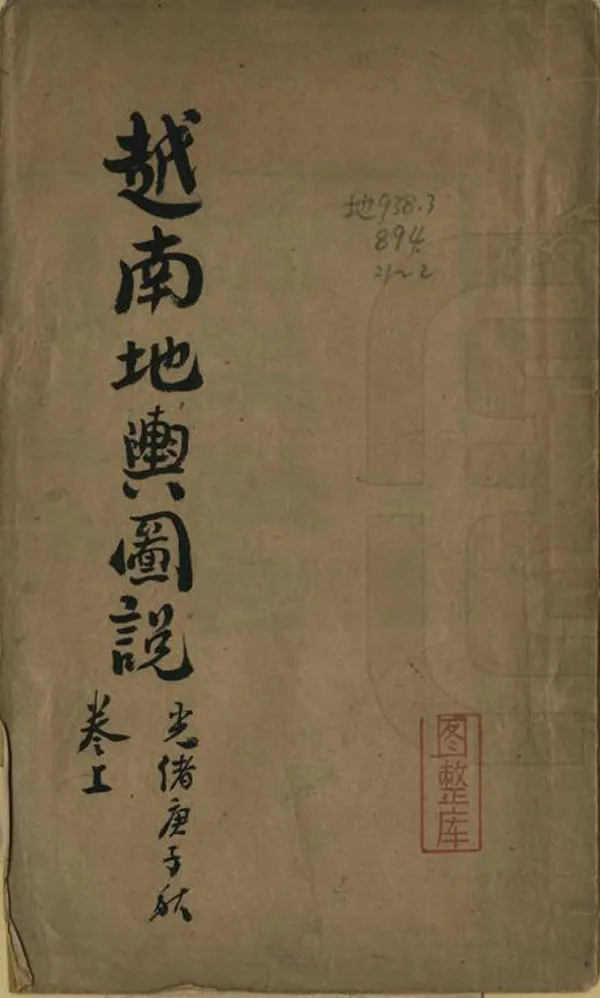 越南地輿圖說
光緒庚子秋
卷上
地938.3
894
:1~2
图整库